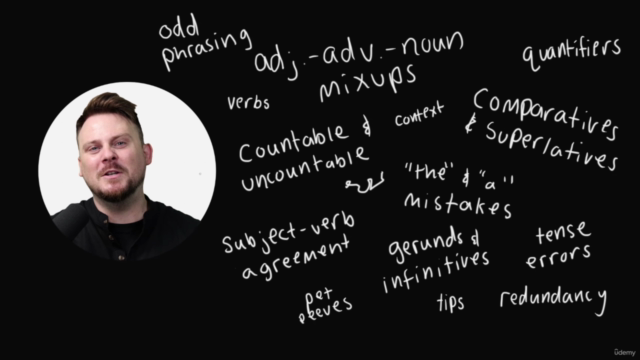 odd
phrasing
adj.-adv.-noun
mixups
quantifiers
verbs
Countable &
uncountable
context
Comparatives
& Superlatives
"the" & "a"
mistakes
subject-verb
agreement
gerunds &
infinitives
tense
errors
pet
peeves
tips
redundancy
ûdemy